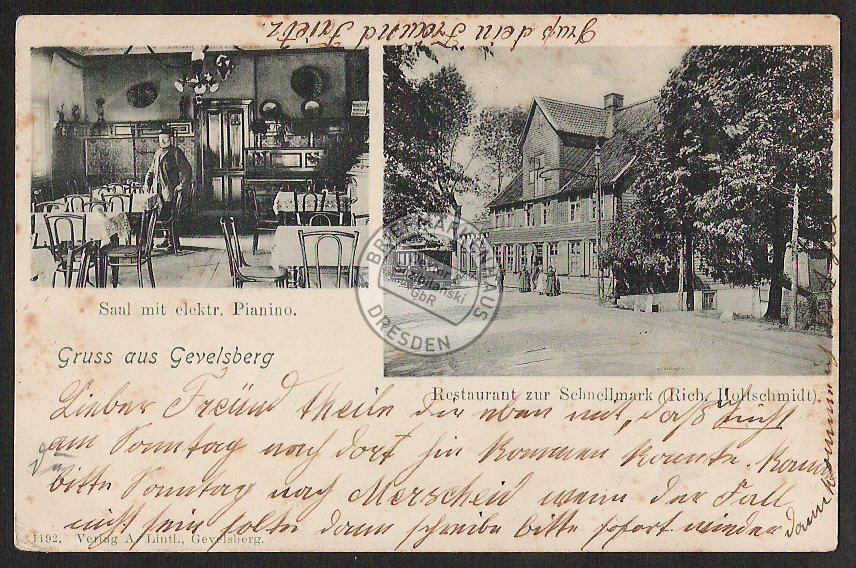 Gruß dein Freund Fritz.
Saal mit elektr. Pianino.
BRIEFMARKENHAUS
GbR
DRESDEN
Gruss aus Gevelsberg
Restaurant zur Schnellmark (Rich. Holtschmidt).
Lieber Freund theile dir eben mit, daß nicht
am Sonntag nach dort hin kommen konnte. Kann
du
bitte Sonntag nach Merscheid wenn der Fall
nicht sein sollte dann schreibe bitte sofort wieder
1492. Verlag A. Lintl., Gevelsberg.